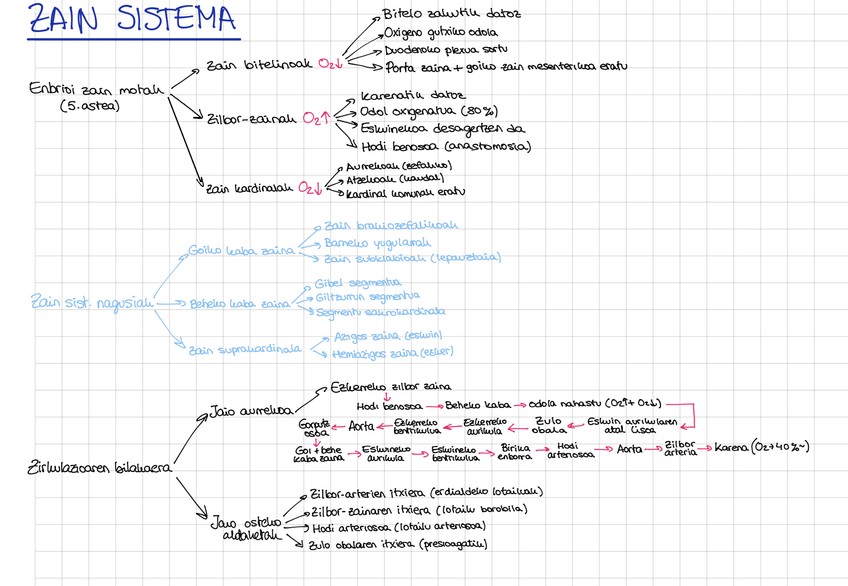 ZAIN SISTEMA
Enbrioi zain motak
(5. astea)
Zain bitelinoak O2↓
Bitelo zakutik datoz
Oxigeno gutxiko odola
Duodenoko plexua sortu
Porta zaina + goiko zain mesenterikoa eratu
Zilbor-zainak O2↑
Karenatik datoz
Odol oxigenatua (80%)
Eskuinekoa desagertzen da
Hodi benosoa (anastomosia)
Zain kardinalak O2↓
Aurrekoak (zefaliko)
Atzekoak (kaudal)
Kardinal komunak eratu
Zain sist. nagusiak
Goiko kaba zaina
Zain brakiozefalikoak
Barneko yugularrak
Zain subklabioak (lepauztaia)
Beheko kaba zaina
Gibel segmentua
Giltzurrun segmentua
Segmentu sakrokardinala
Zain suprakardinala
Azigos zaina (eskuin)
Hemiazigos zaina (ezker)
Zirkulazioaren bilakaera
Jaio aurrekoa
Ezkerreko zilbor zaina
Hodi benosoa → Beheko kaba → odola nahastu (O2↑+ O2↓)
Eskuin aurikularen atal lisoa → Zulo obalea → Ezkerreko aurikula → Ezkerreko bentrikulua → Aorta → Gorputz osoa
Goi + behe kaba zaina → Eskuineko aurikula → Eskuineko bentrikulua → Birika enborra → Hodi arteriosoa → Aorta → Zilbor arteria → Karena (O2↓40%~)
Jaio osteko aldaketak
Zilbor-arterien itxiera (erdialdeko lotailuak)
Zilbor-zainaren itxiera (lotailu borobila)
Hodi arteriosoa (lotailu arteriosoa)
Zulo obalaren itxiera (presioagatik)